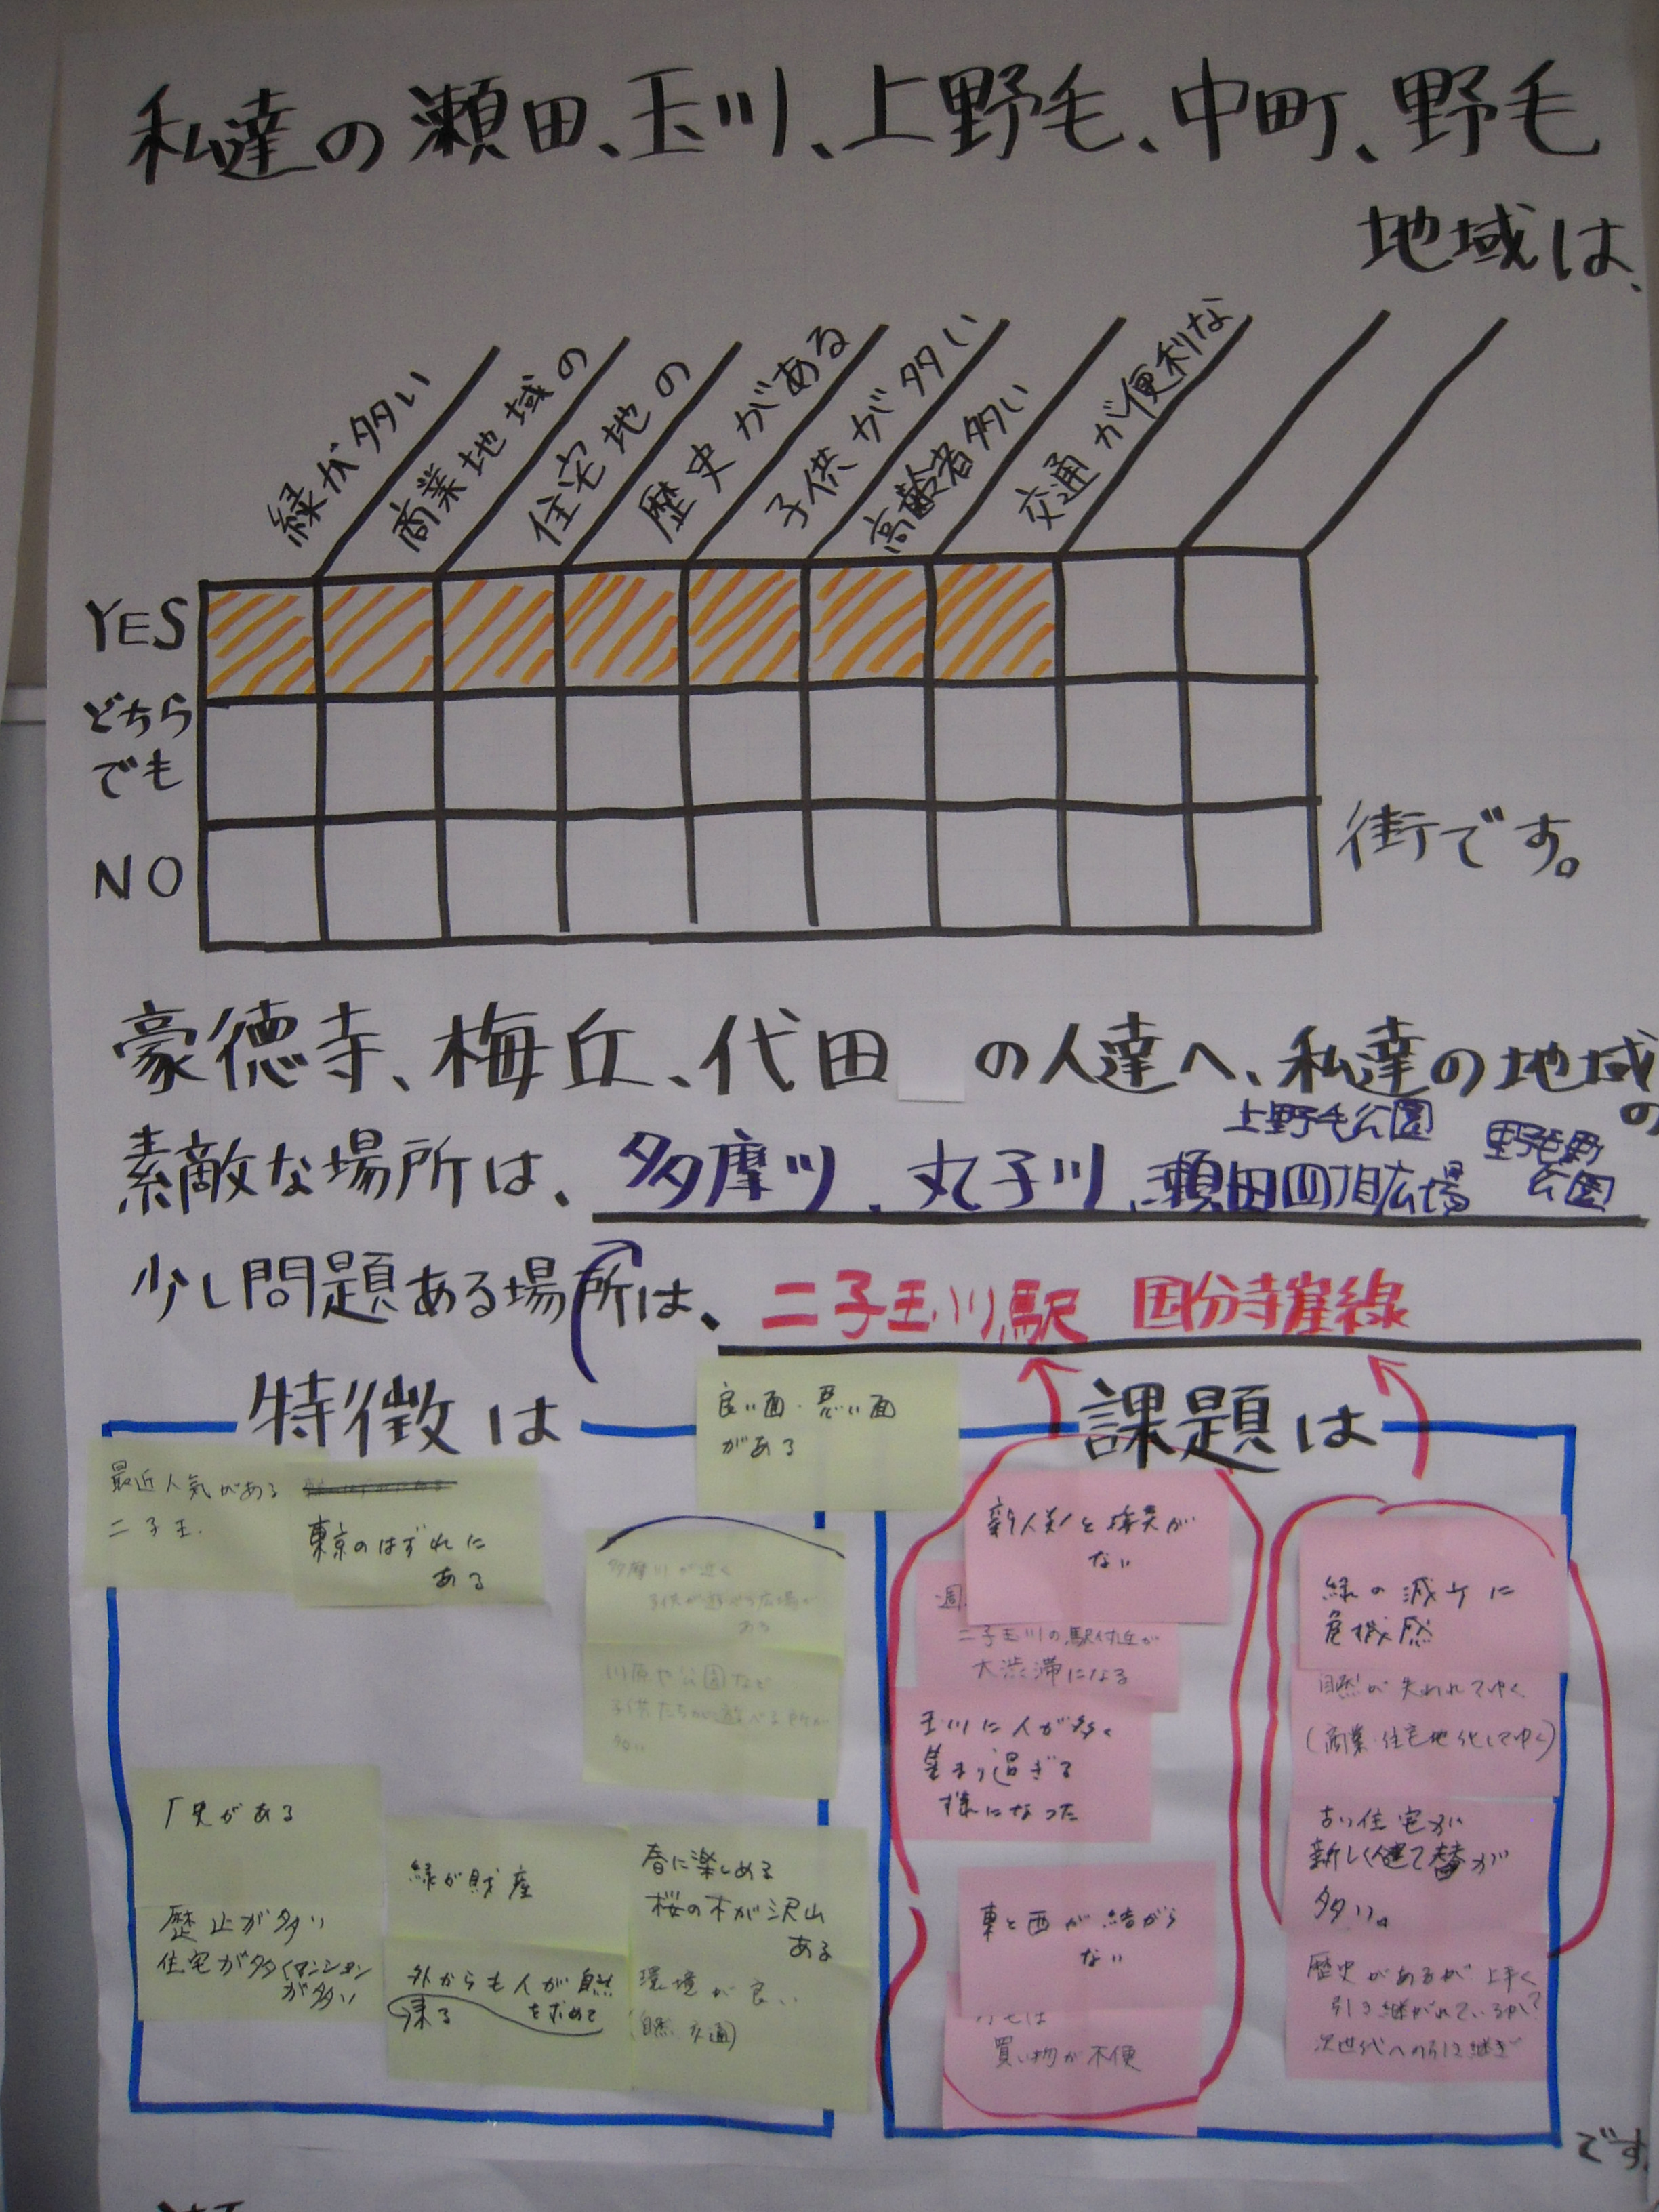 私達の瀬田、玉川、上野毛、中町、野毛
地域は、
緑が多い
商業地域の
住宅地の
歴史がある
子供が多い
高齢者多い
交通が便利な
YES
どちら
でも
NO
街です。
豪徳寺、梅丘、代田 の人達へ、私達の地域
の
上野毛公園
野毛町
公園
素敵な場所は、多摩川、丸子川、瀬田四丁目広場
少し問題ある場所は、二子玉川駅 国分寺崖線
特徴は
課題は
良い面・悪い面
がある
最近人気がある
二子玉.
東京のはずれに
ある
多摩川が近く
子供が遊べる広場が
ある
川原や公園など
子供たちが遊べる所が
多い
歴史がある
住宅が多く(マンション
が多い
緑が財産
外からも人が自然
を求めて
来る
春に楽しめる
桜の木が沢山
ある
環境が良い
(自然 交通)
ない
週
二子玉川の駅付近が
大渋滞になる
玉川に人が多く
集まり過ぎる
様になった
東と西が結がら
ない
買い物が不便
緑の減少に
危機感
自然が失われてゆく
(商業・住宅地化してゆく)
古い住宅が
新しく建て替が
多い。
歴史があるが上手く
引き継がれているか?
次世代への引き継ぎ
です。